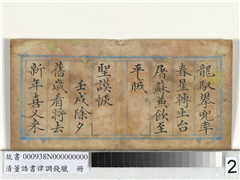 龍馭舉兜率
春星轉上台
賡蘇無飲至
平賊
聖謨恢
壬戌除夕
舊歲看將去
新年喜又來
故書 000938N000000000
清董誥書律調錢臘 冊
2